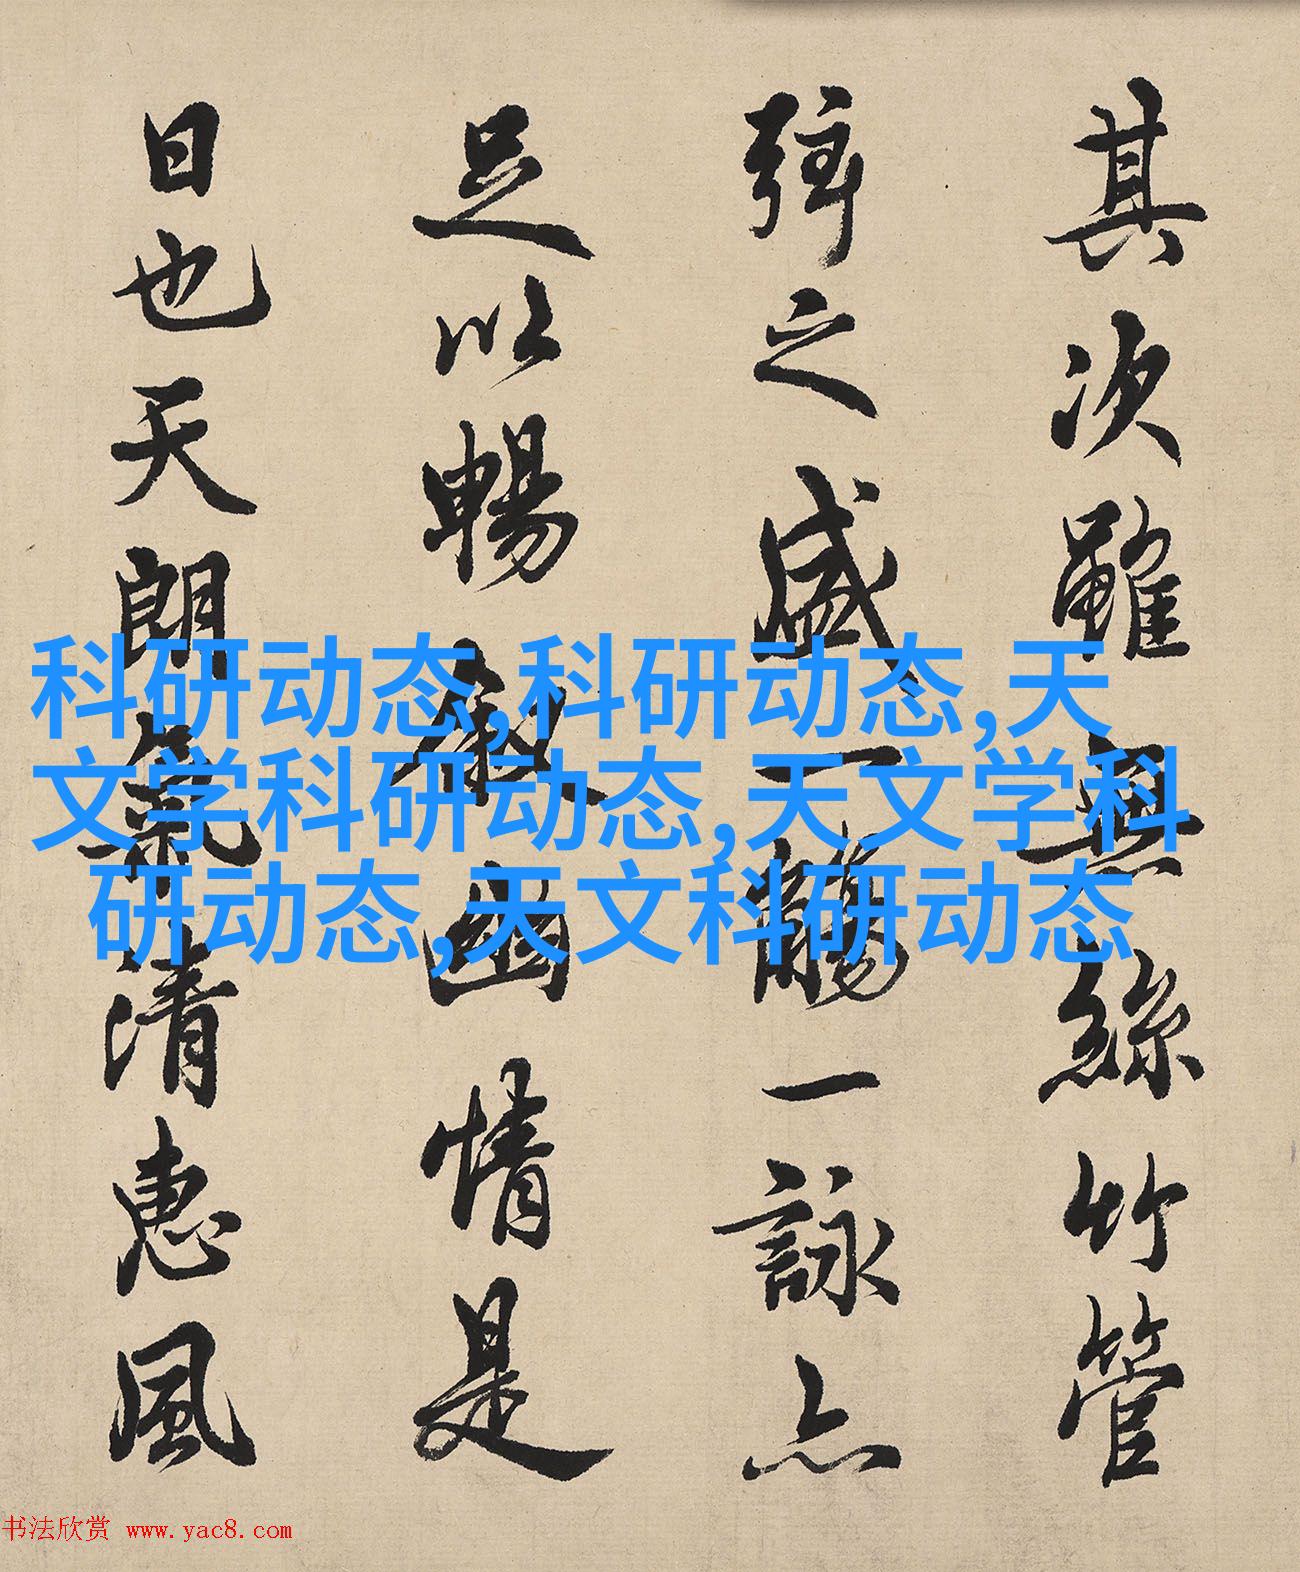 其次雖無絲竹管
弦之盛一觴一詠亦
足以暢敘幽情是
日也天朗氣清惠風
科研动态,科研动态,天
文学科研动态,天文学科
研动态,天文科研动态
书法欣赏 www.yac8.com